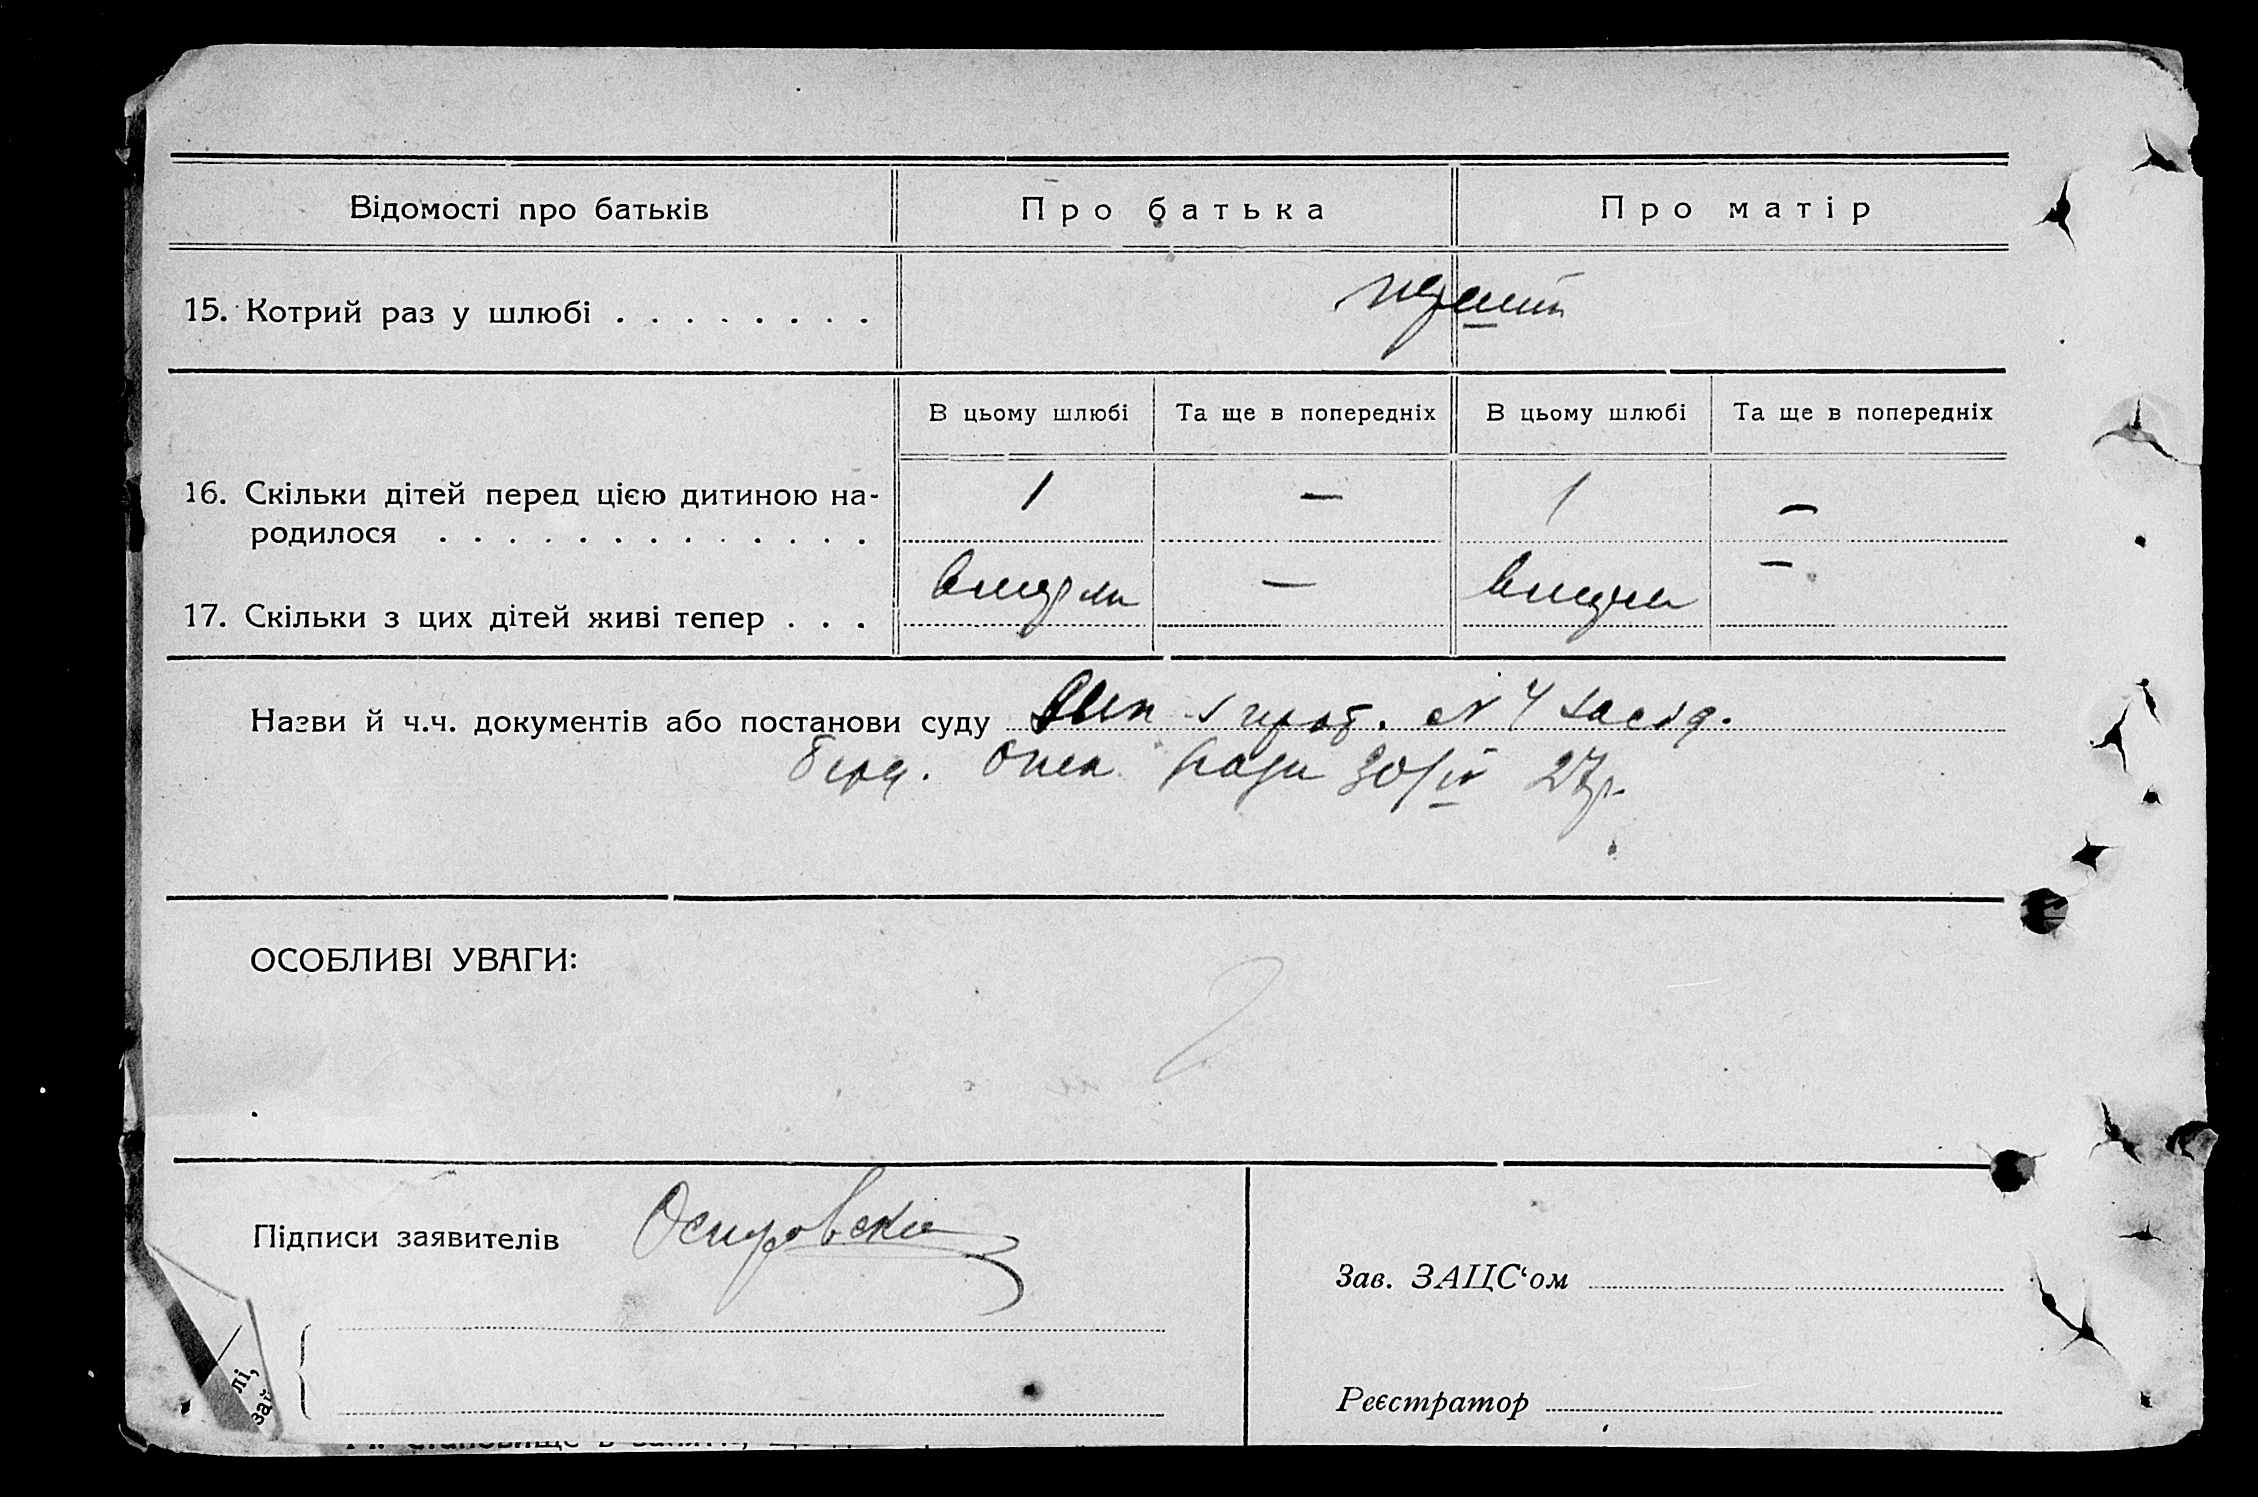 Відомості про батьків
Про батька
Про матір
15. Котрий раз у шлюбі . . . . . . . .
перший
В цьому шлюбі
Та ще в попередніх
В цьому шлюбі
Та ще в попередніх
16. Скільки дітей перед цією дитиною на-
родилося . . . . . . . . . . . . .
1 — 1 —
17. Скільки з цих дітей живі тепер . . .
вмерли — вмерли —
Назви й ч.ч. документів або постанови суду
Вип з прот. № 4 засід.
опек ради 30/IV 27 р.
ОСОБЛИВІ УВАГИ:
Підписи заявителів
Островский
Зав. ЗАЦС‘ом
Реєстратор
лі,
зай